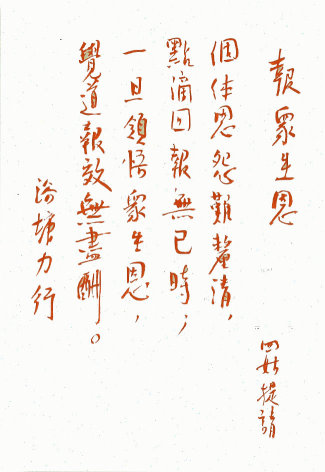 報眾生恩
四姑提請
個体恩怨難釐清,
點滴回報無已時;
一旦領悟眾生恩,
覺道報效無盡酬。
塘力行